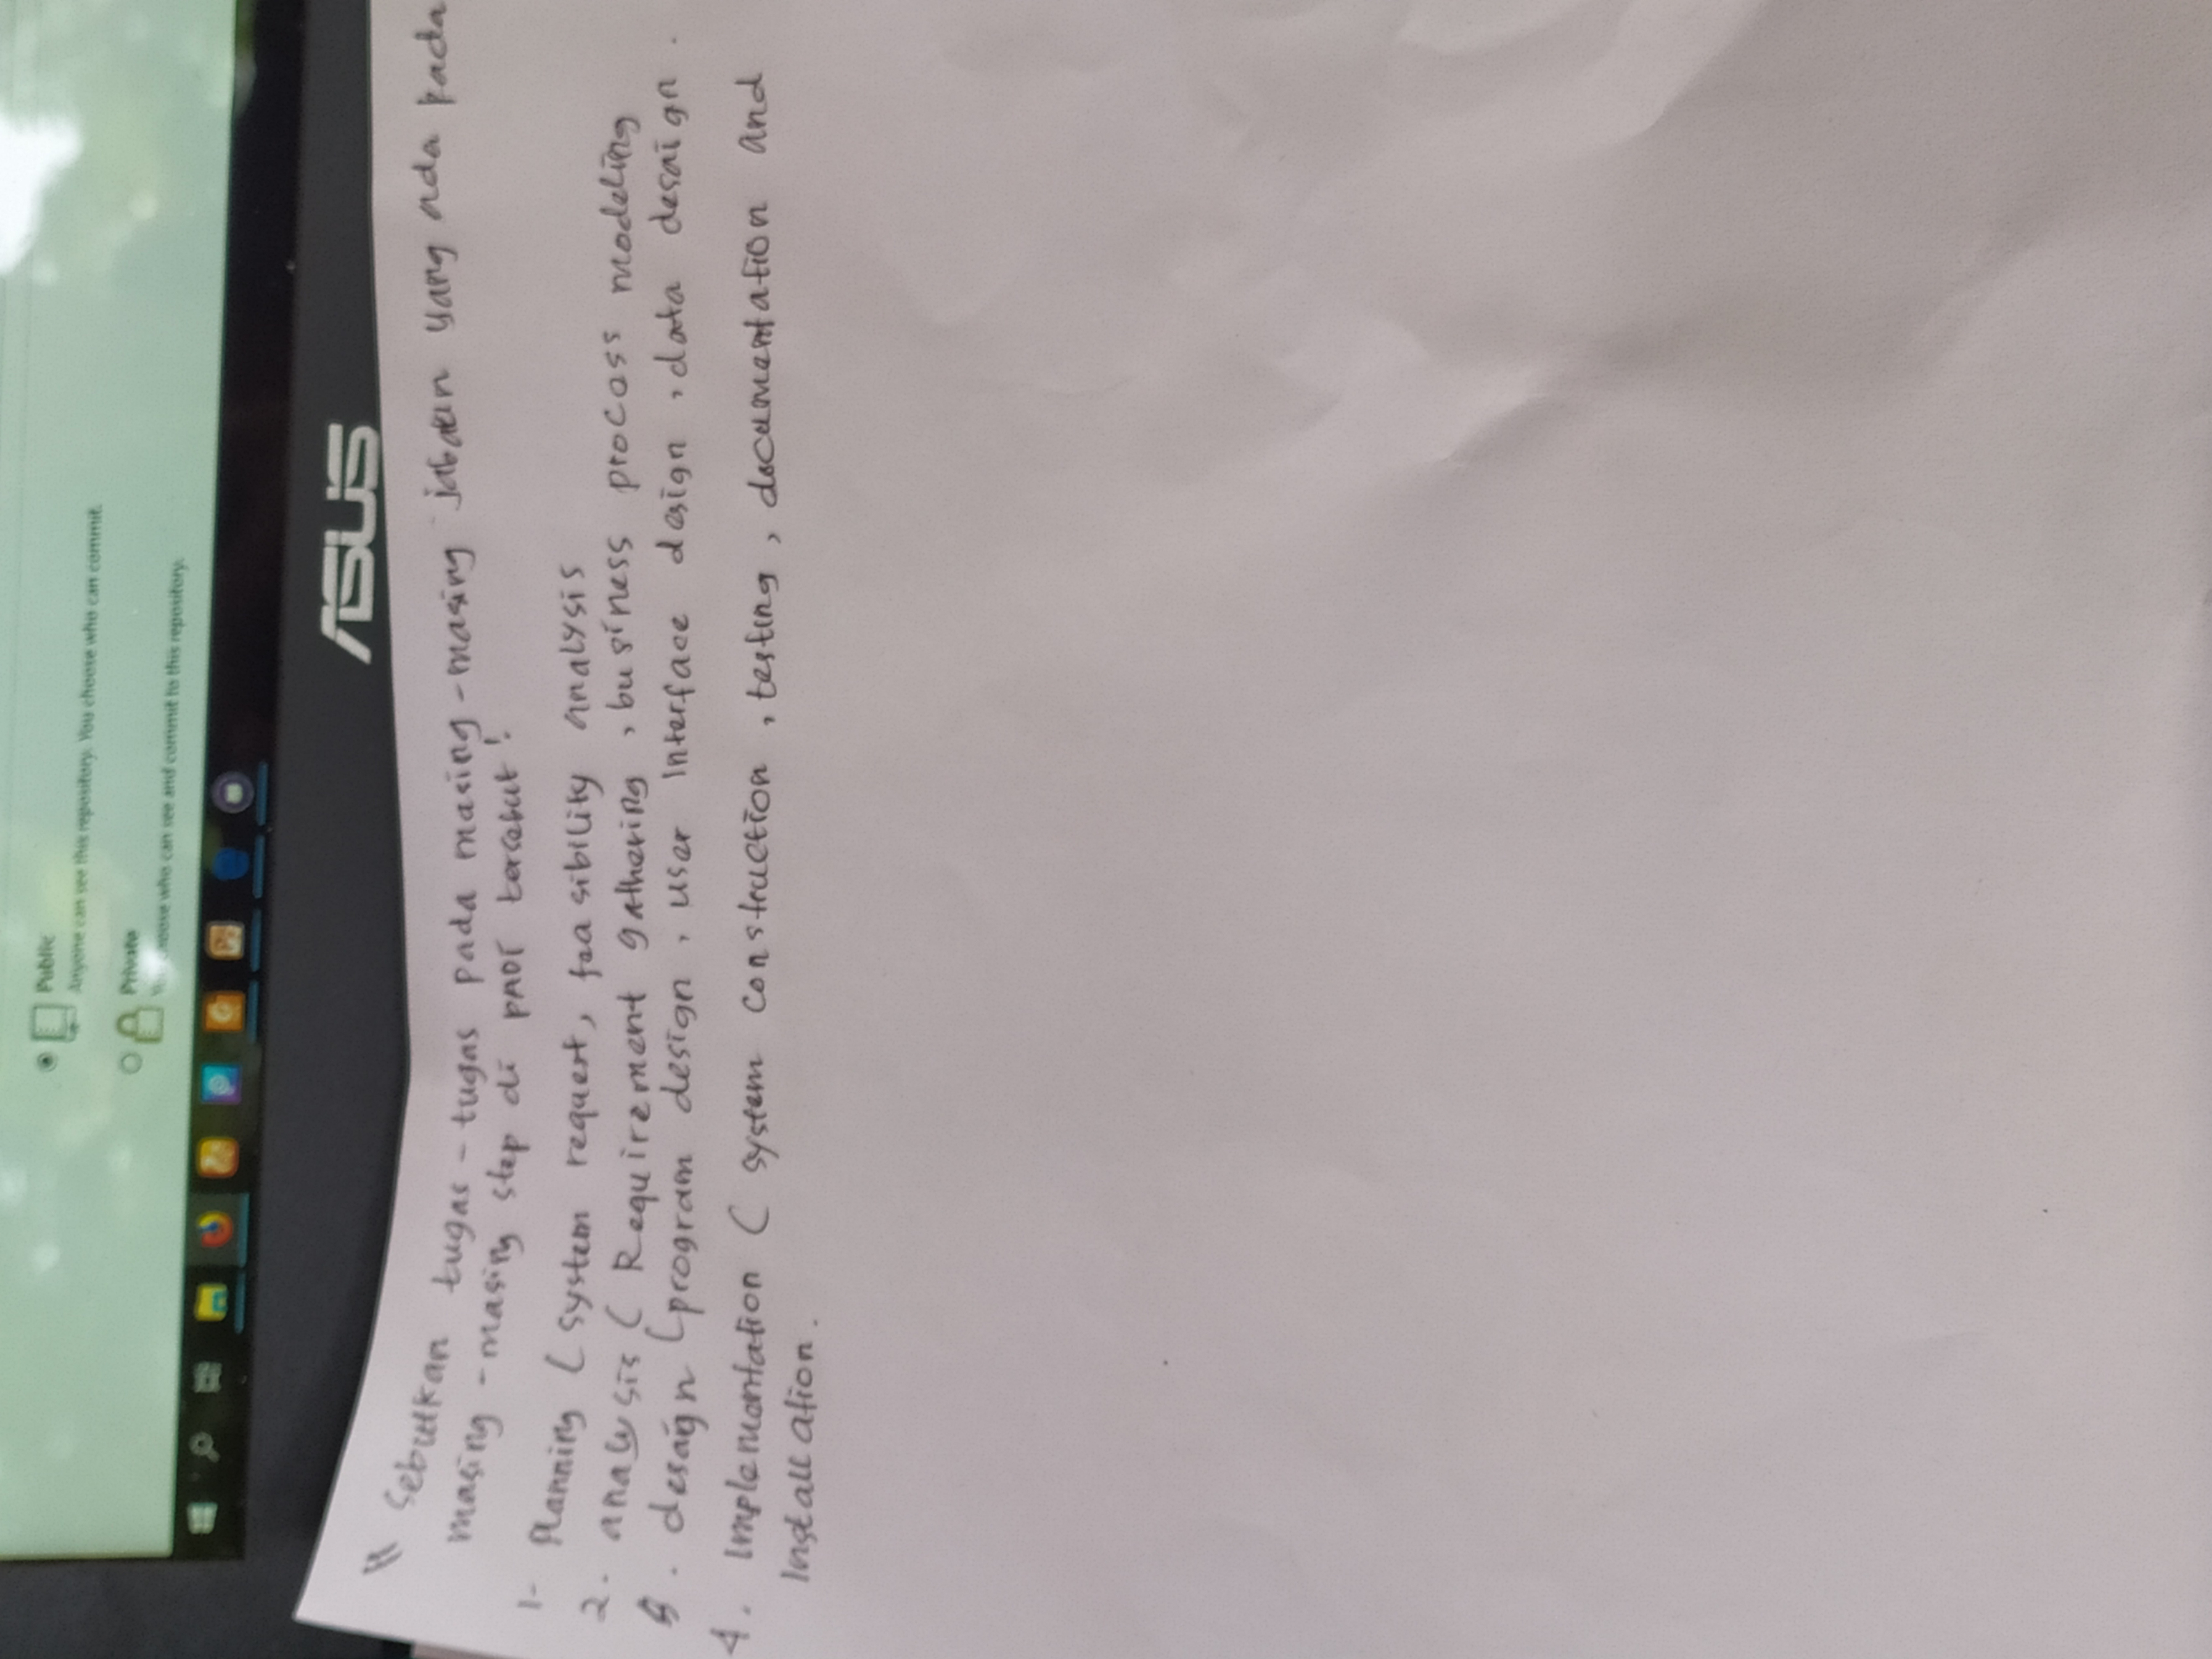 Public
Anyone can see this repository. You choose who can commit.
Private
You choose who can see and commit to this repository.
ASUS
Sebutkan tugas - tugas pada masing - masing jabaan yang ada pada
masing - masing step di PADI tersebut!
1- Planning ( system request, feasibility analysis
2. analysis ( Requirement gathering , business procoss modeling
3. desaign ( program design , user Interface design , data desaign .
4. Implementation ( system construction , testing , documentation and
Installation .